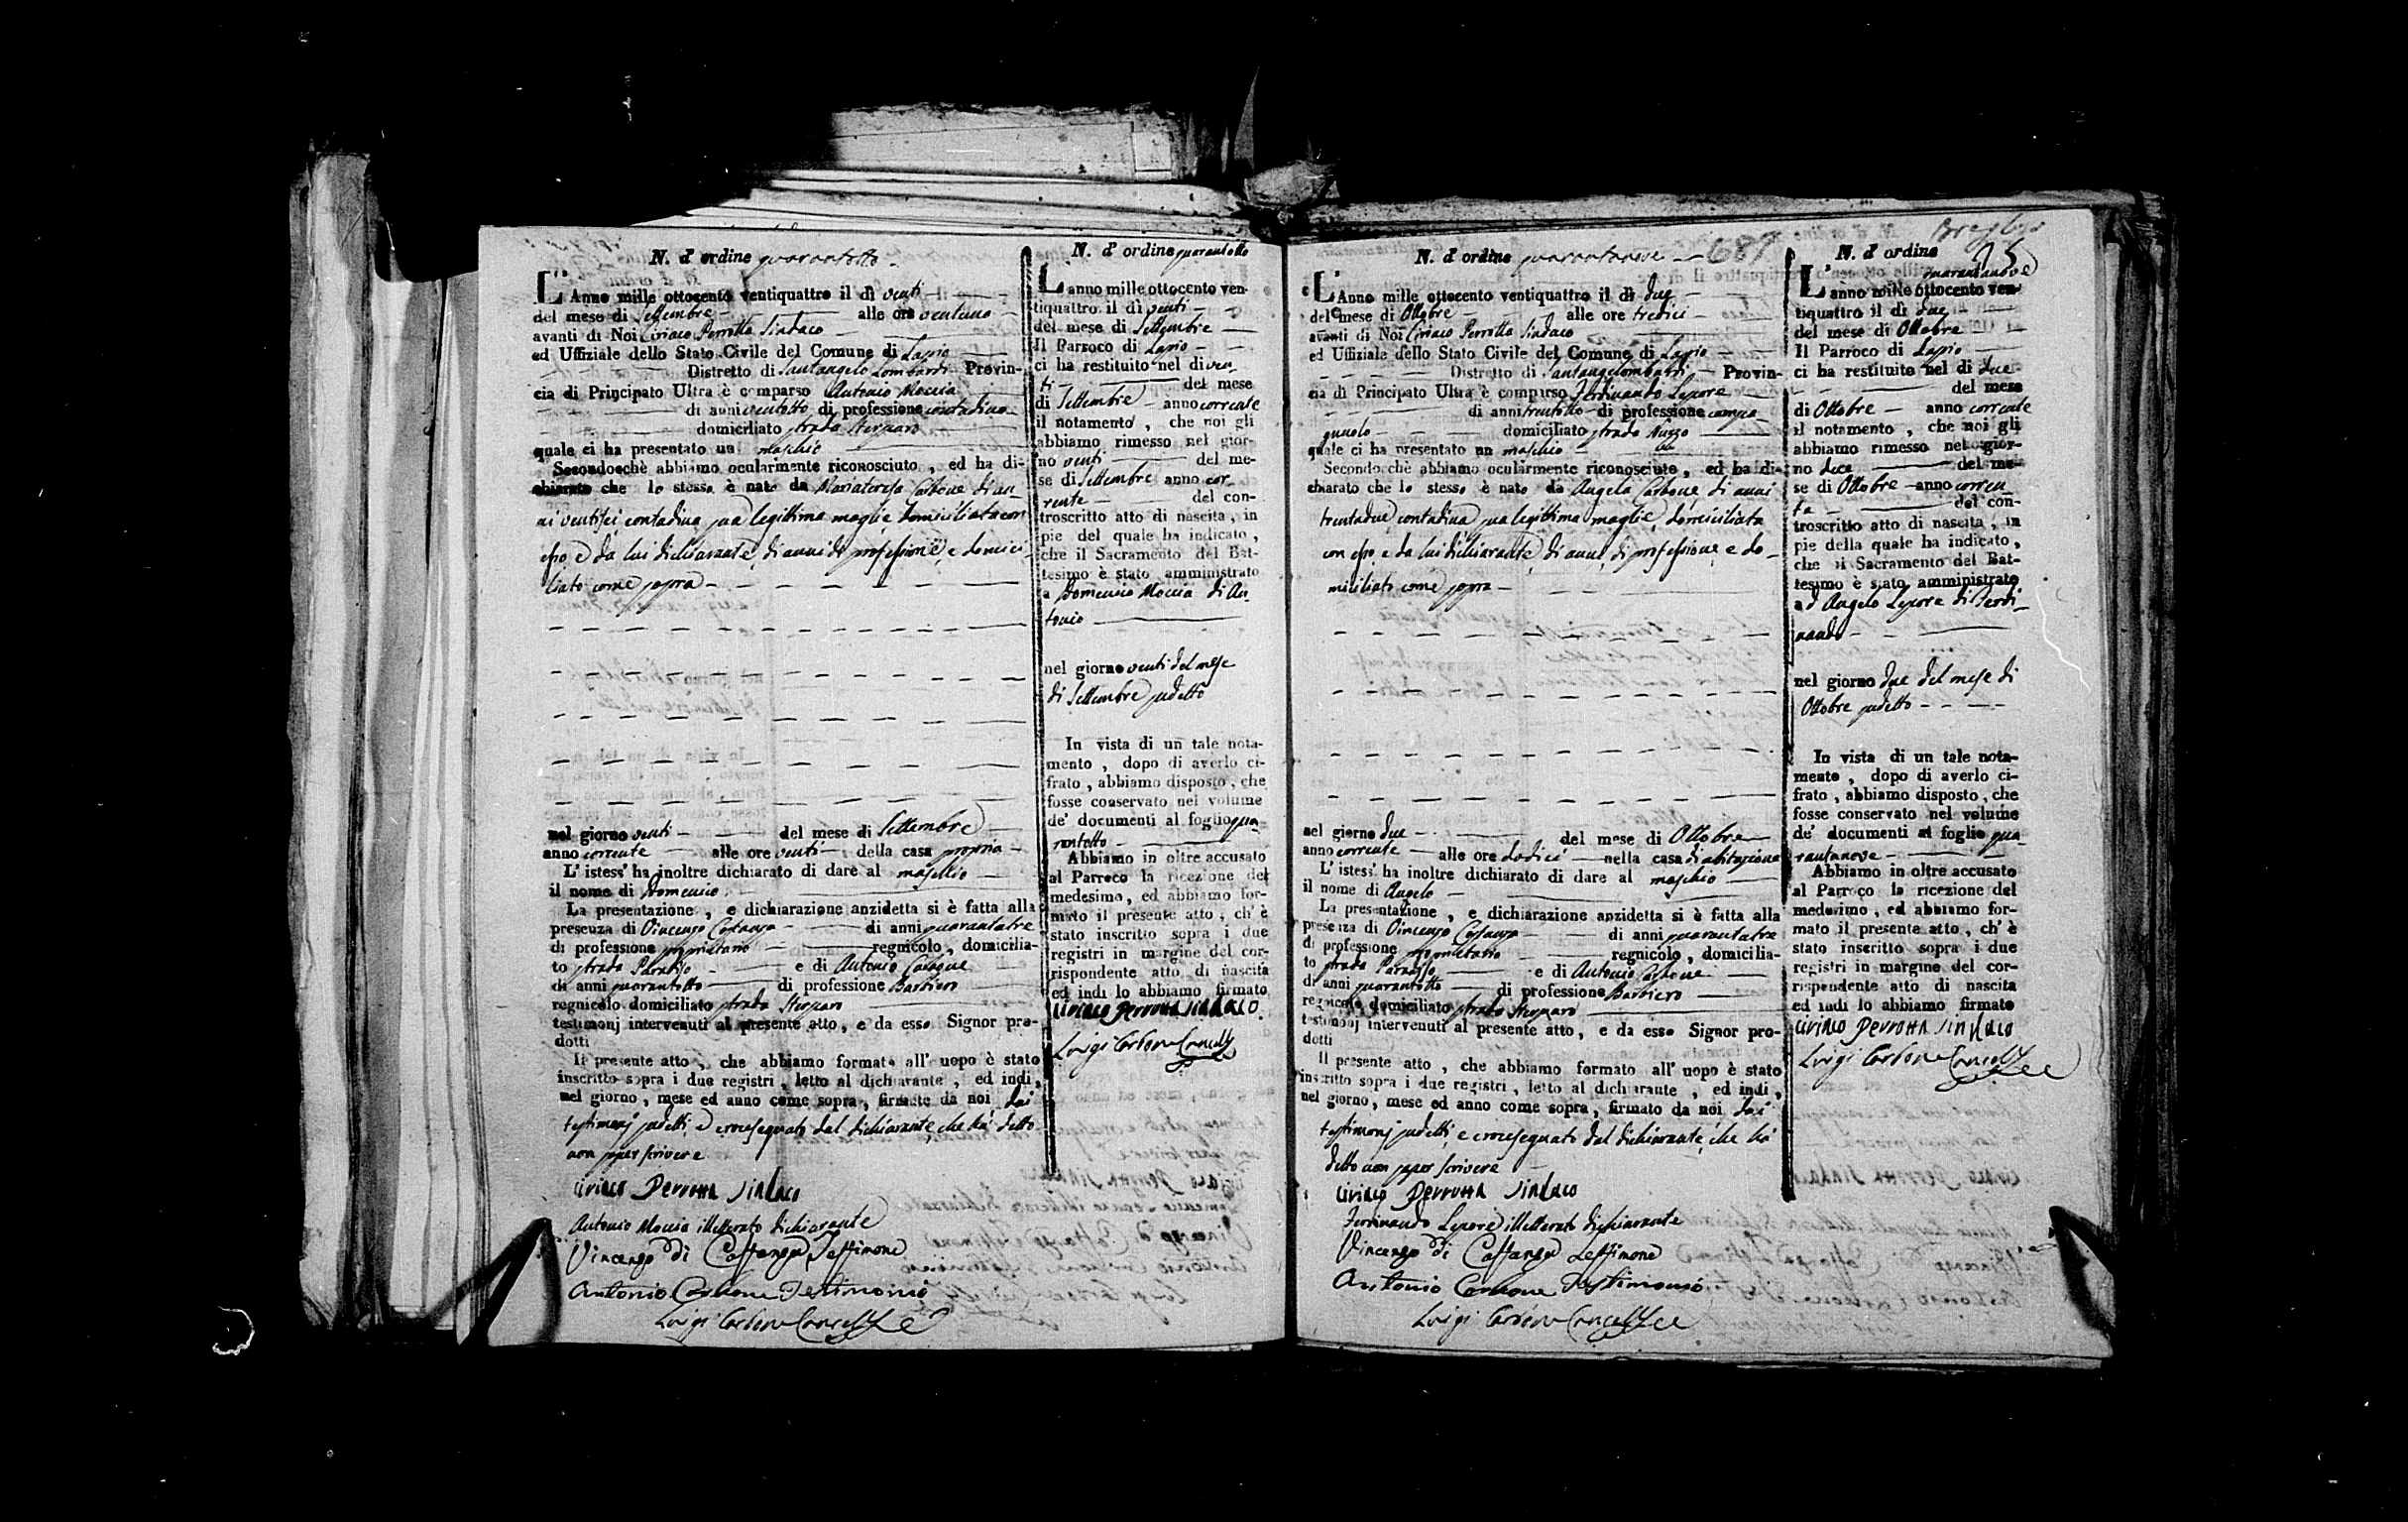 N. d' ordine quarantotto
L' Anno mille ottocento ventiquattro il dì venti
del mese di Settembre alle ore ventuno
avanti di Noi Ciriaco Perrotta Sindaco
ed Uffiziale dello Stato Civile del Comune di Lapio
Distretto di Santangelo Lombardi Provin-
cia di Principato Ultra è comparso Antonio Moccia
di anni ventotto di professione contadino
domiciliato strada Sterparo
quale ci ha presentato un maschio
Secondochè abbiamo ocularmente riconosciuto, ed ha di-
chiarato che lo stesso è nato da Mariateresa Carbone di an-
ni ventisei contadina sua legittima moglie domiciliata con
esso e da lui dichiarante, di anni di professione, e domici-
liato come sopra
nel giorno venti del mese di Settembre
anno corrente alle ore venti della casa propria
L' istess' ha inoltre dichiarato di dare al maschio
il nome di Domenico
La presentazione, e dichiarazione anzidetta si è fatta alla
presenza di Vincenzo Costanza di anni quarantatre
di professione proprietario regnicolo, domicilia-
to strada Paradiso e di Antonio Carbone
di anni quarantotto di professione Barbiero
regnicolo domiciliato strada Sterparo
testimonj intervenuti al presente atto, e da esso Signor pro-
dotti
Il presente atto, che abbiamo formato all' uopo è stato
inscritto sopra i due registri, letto al dichiarante, ed indi,
nel giorno, mese ed anno come sopra, firmato da noi dai
testimonj sudetti, e crocesegnato dal dichiarante, che ha detto
non saper scrivere
Ciriaco Perrotta Sindaco
Antonio Moccia illetterato dichiarante
Vincenzo di Costanza Testimone
Antonio Carbone Testimonio
Luigi Carbone Cancelliere
N. d' ordine quarantotto
L' anno mille ottocento ven-
tiquattro il dì venti
del mese di Settembre
Il Parroco di Lapio
ci ha restituito nel di ven-
ti del mese
di Settembre anno corrente
il notamento, che noi gli
abbiamo rimesso nel gior-
no venti del me-
se di Settembre anno cor-
rente del con-
troscritto atto di nascita, in
pie del quale ha indicato,
che il Sacramento del Bat-
tesimo è stato amministrato
a Domenico Moccia di An-
tonio
nel giorno venti del mese
di Settembre sudetto
In vista di un tale nota-
mento, dopo di averlo ci-
frato, abbiamo disposto, che
fosse conservato nel volume
de' documenti al foglio qua-
rantotto
Abbiamo in oltre accusato
al Parroco la ricezione del
medesimo, ed abbiamo for-
mato il presente atto, ch' è
stato inscritto sopra i due
registri in margine del cor-
rispondente atto di nascita
ed indi lo abbiamo firmato
Ciriaco Perrotta Sindaco
Luigi Carbone Cancelliere
N. d' ordine quarantanove 687
L' Anno mille ottocento ventiquattro il dì due
del mese di Ottobre alle ore tredici
avanti di Noi Ciriaco Perrotta Sindaco
ed Uffiziale dello Stato Civile del Comune di Lapio
Distretto di Santangelombardi Provin-
cia di Principato Ultra è comparso Ferdinando Lepore
di anni trentotto di professione campa-
gnuolo domiciliato strada Nuzzo
quale ci ha presentato un maschio
Secondo che abbiamo ocularmente riconosciuto, ed ha di-
chiarato che lo stesso è nato da Angela Carbone di anni
trentadue contadina sua legittima moglie, domiciliata
con esso, e da lui dichiarante, di anni, di professione, e do-
miciliato come sopra
nel giorno due del mese di Ottobre
anno corrente alle ore dodici nella casa di abitazione
L' istess' ha inoltre dichiarato di dare al maschio
il nome di Angelo
La presentazione, e dichiarazione anzidetta si è fatta alla
presenza di Vincenzo Costanza di anni quarantatre
di professione proprietario regnicolo, domicilia-
to strada Paradiso e di Antonio Carbone
di anni quarantotto di professione Barbiero
regnicolo domiciliato strada Sterparo
testimonj intervenuti al presente atto, e da esso Signor pro-
dotti
Il presente atto, che abbiamo formato all' uopo è stato
inscritto sopra i due registri, letto al dichiarante, ed indi,
nel giorno, mese ed anno come sopra, firmato da noi dai
testimonj sudetti, e crocesegnato dal dichiarante, che ha
detto non saper scrivere
Ciriaco Perrotta Sindaco
Ferdinando Lepore illetterato dichiarante
Vincenzo di Costanza Testimone
Antonio Carbone Testimonio
Luigi Carbone Cancelliere
N. d' ordine 25
quarantanove
L' anno mille ottocento ven-
tiquattro il dì due
del mese di Ottobre
Il Parroco di Lapio
ci ha restituito nel di due
del mese
di Ottobre anno corrente
il notamento, che noi gli
abbiamo rimesso nel gior-
no due del me-
se di Ottobre anno corren-
te del con-
troscritto atto di nascita, in
pie della quale ha indicato,
che il Sacramento del Bat-
tesimo è stato amministrato
ad Angelo Lepore di Ferdi-
nando
nel giorno due del mese di
Ottobre sudetto
In vista di un tale nota-
mento, dopo di averlo ci-
frato, abbiamo disposto, che
fosse conservato nel volume
de' documenti al foglio qua-
rantanove
Abbiamo in oltre accusato
al Parroco la ricezione del
medesimo, ed abbiamo for-
mato il presente atto, ch' è
stato inscritto sopra i due
registri in margine del cor-
rispondente atto di nascita
ed indi lo abbiamo firmato
Ciriaco Perrotta Sindaco
Luigi Carbone Cancelliere